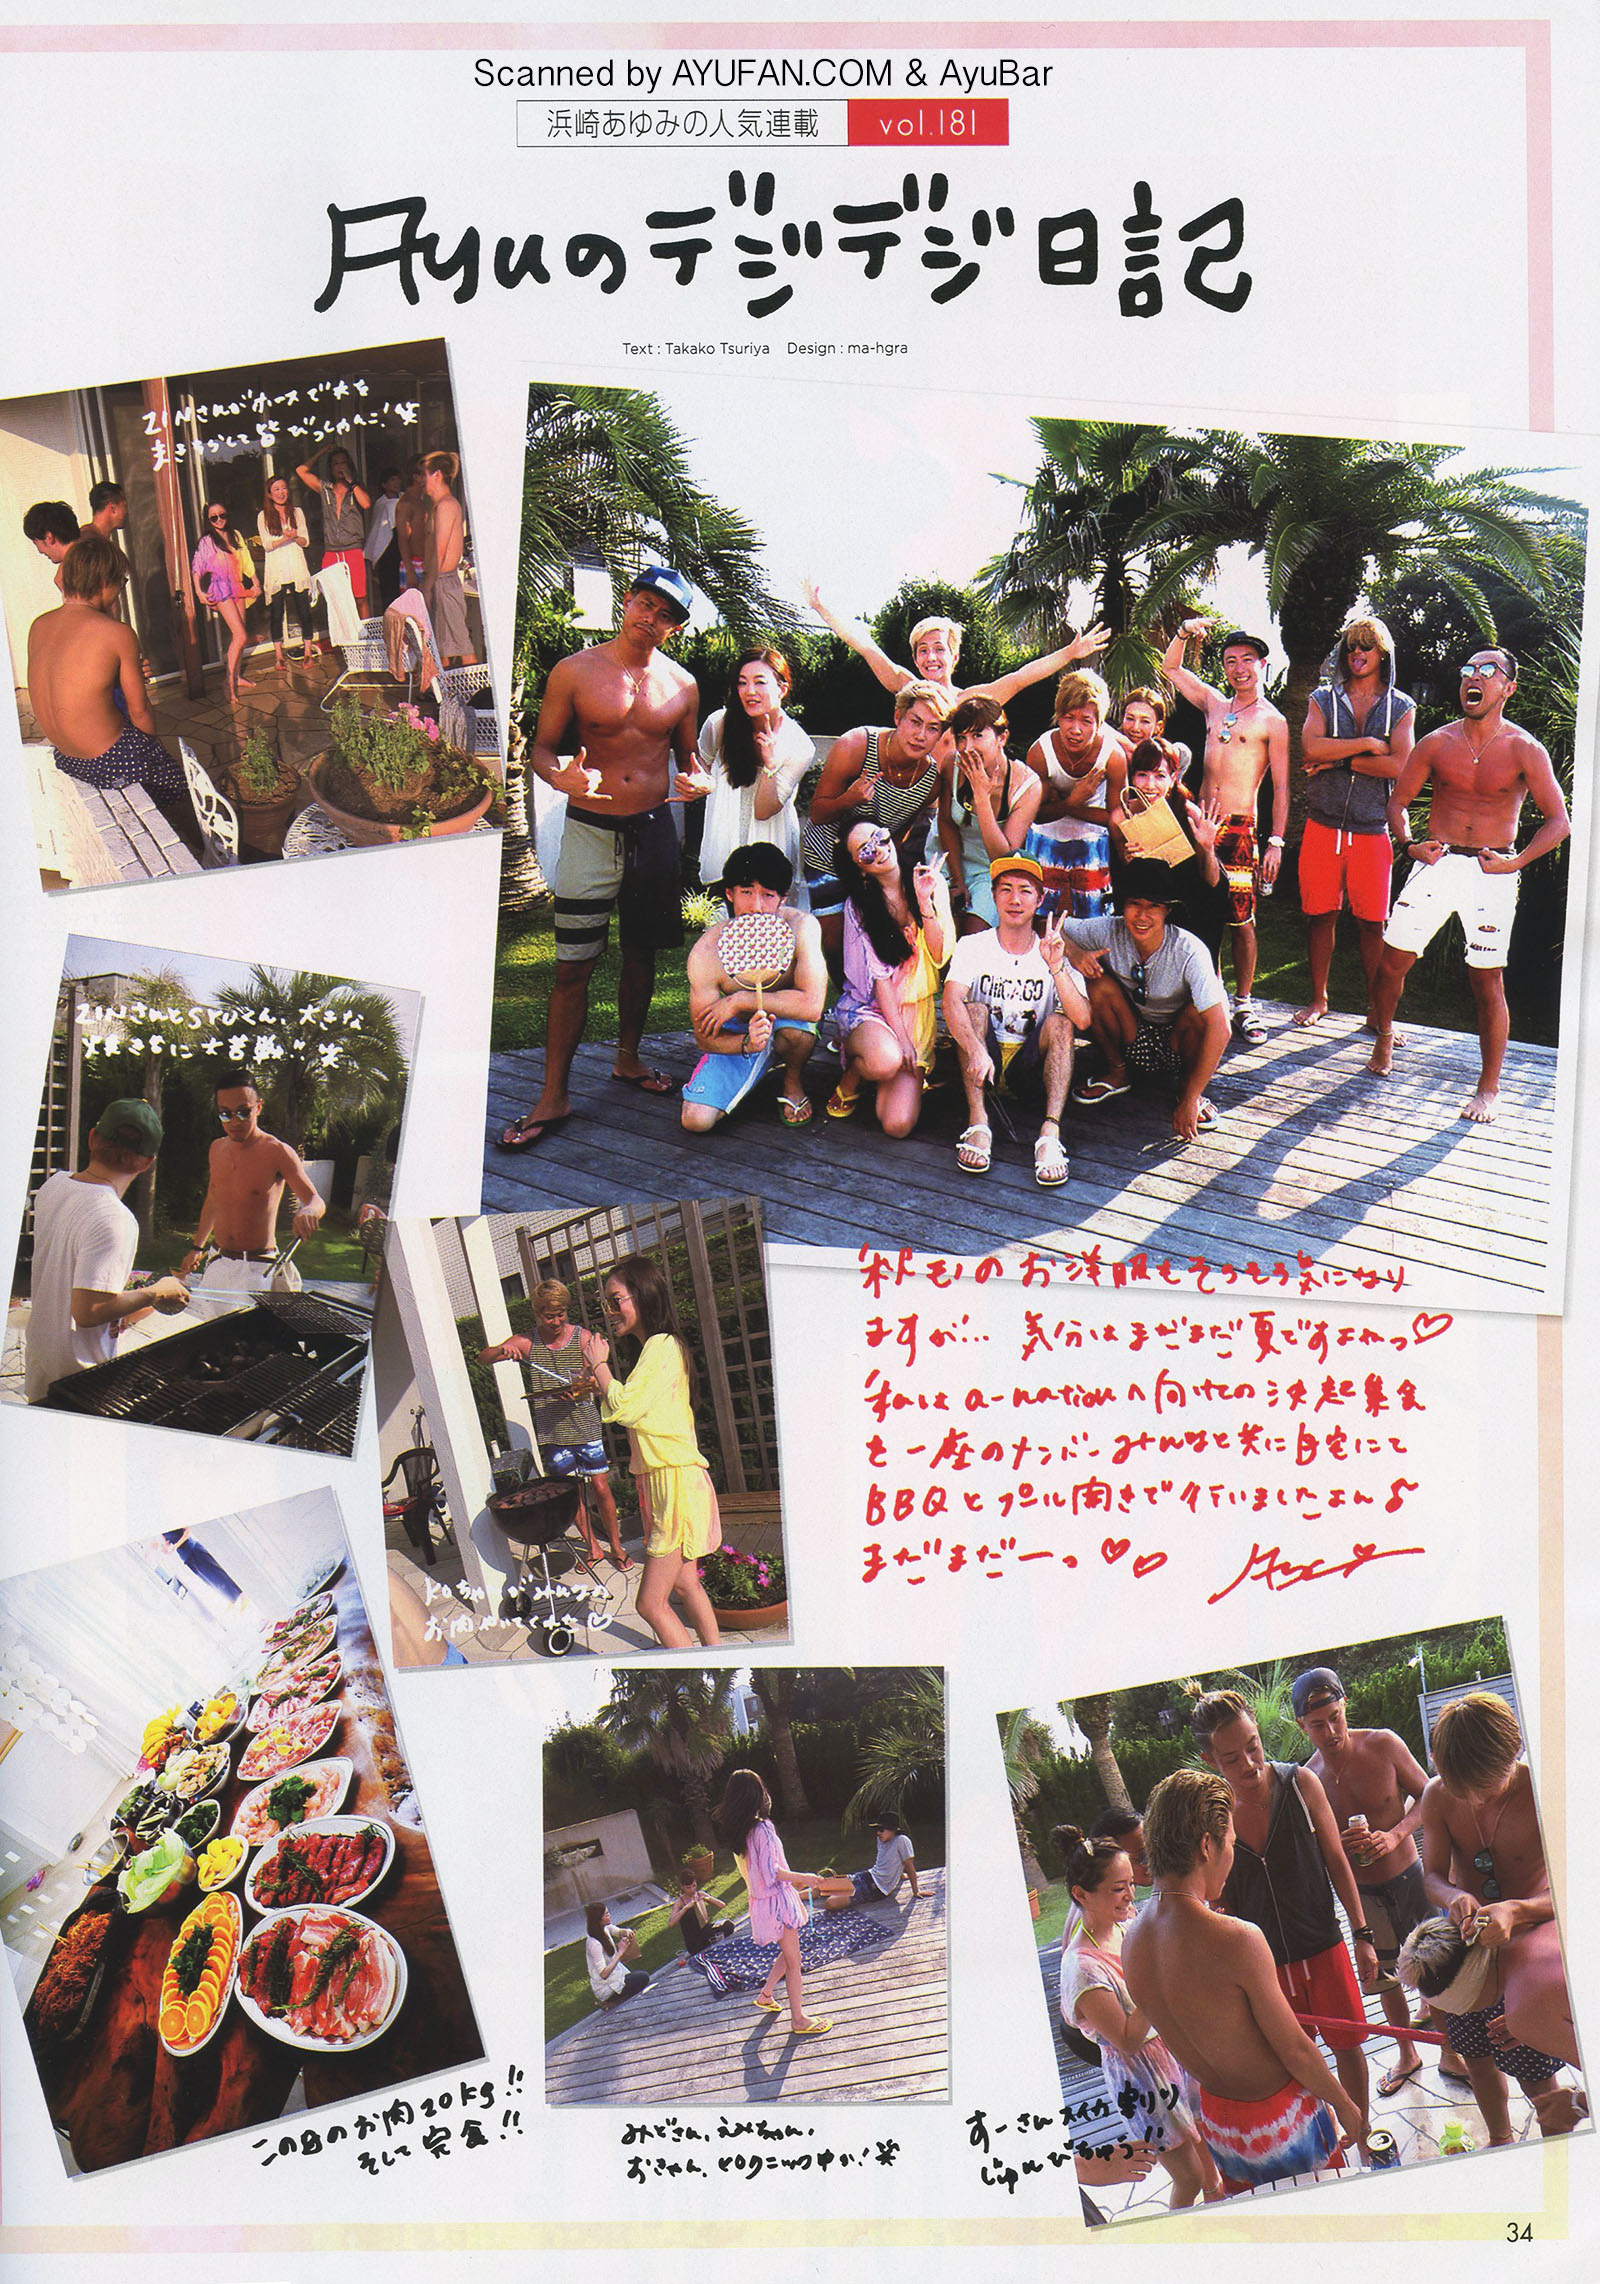 Scanned by AYUFAN.COM & AyuBar
浜崎あゆみの人気連載 vol.181
Ayuのデジデジ日記
Text : Takako Tsuriya Design : ma-hgra
ZINさんがホースで水を
まきちらして皆びっしゃんこ!笑
ZINさんとSYUくん、大きな
焼き台に大苦戦!!笑
秋モノのお洋服もそろそろ気になり
ますが… 気分はまだまだ夏ですよねっ♡
私はa-nationへ向けての決起集会
を一座のメンバーみんなと共に自宅にて
BBQとプール開きで行いましたよん♪
まだまだーっ♡♡
ちゃんがみんなの
お肉やいてくれた♡
この日のお肉20kg!!
そして完食!!
みどさん、えみちゃん、
おきゃん、ピクニック中か!笑
すーさんスイカ割り
じゅんびちゅう!!
34
CHICAGO